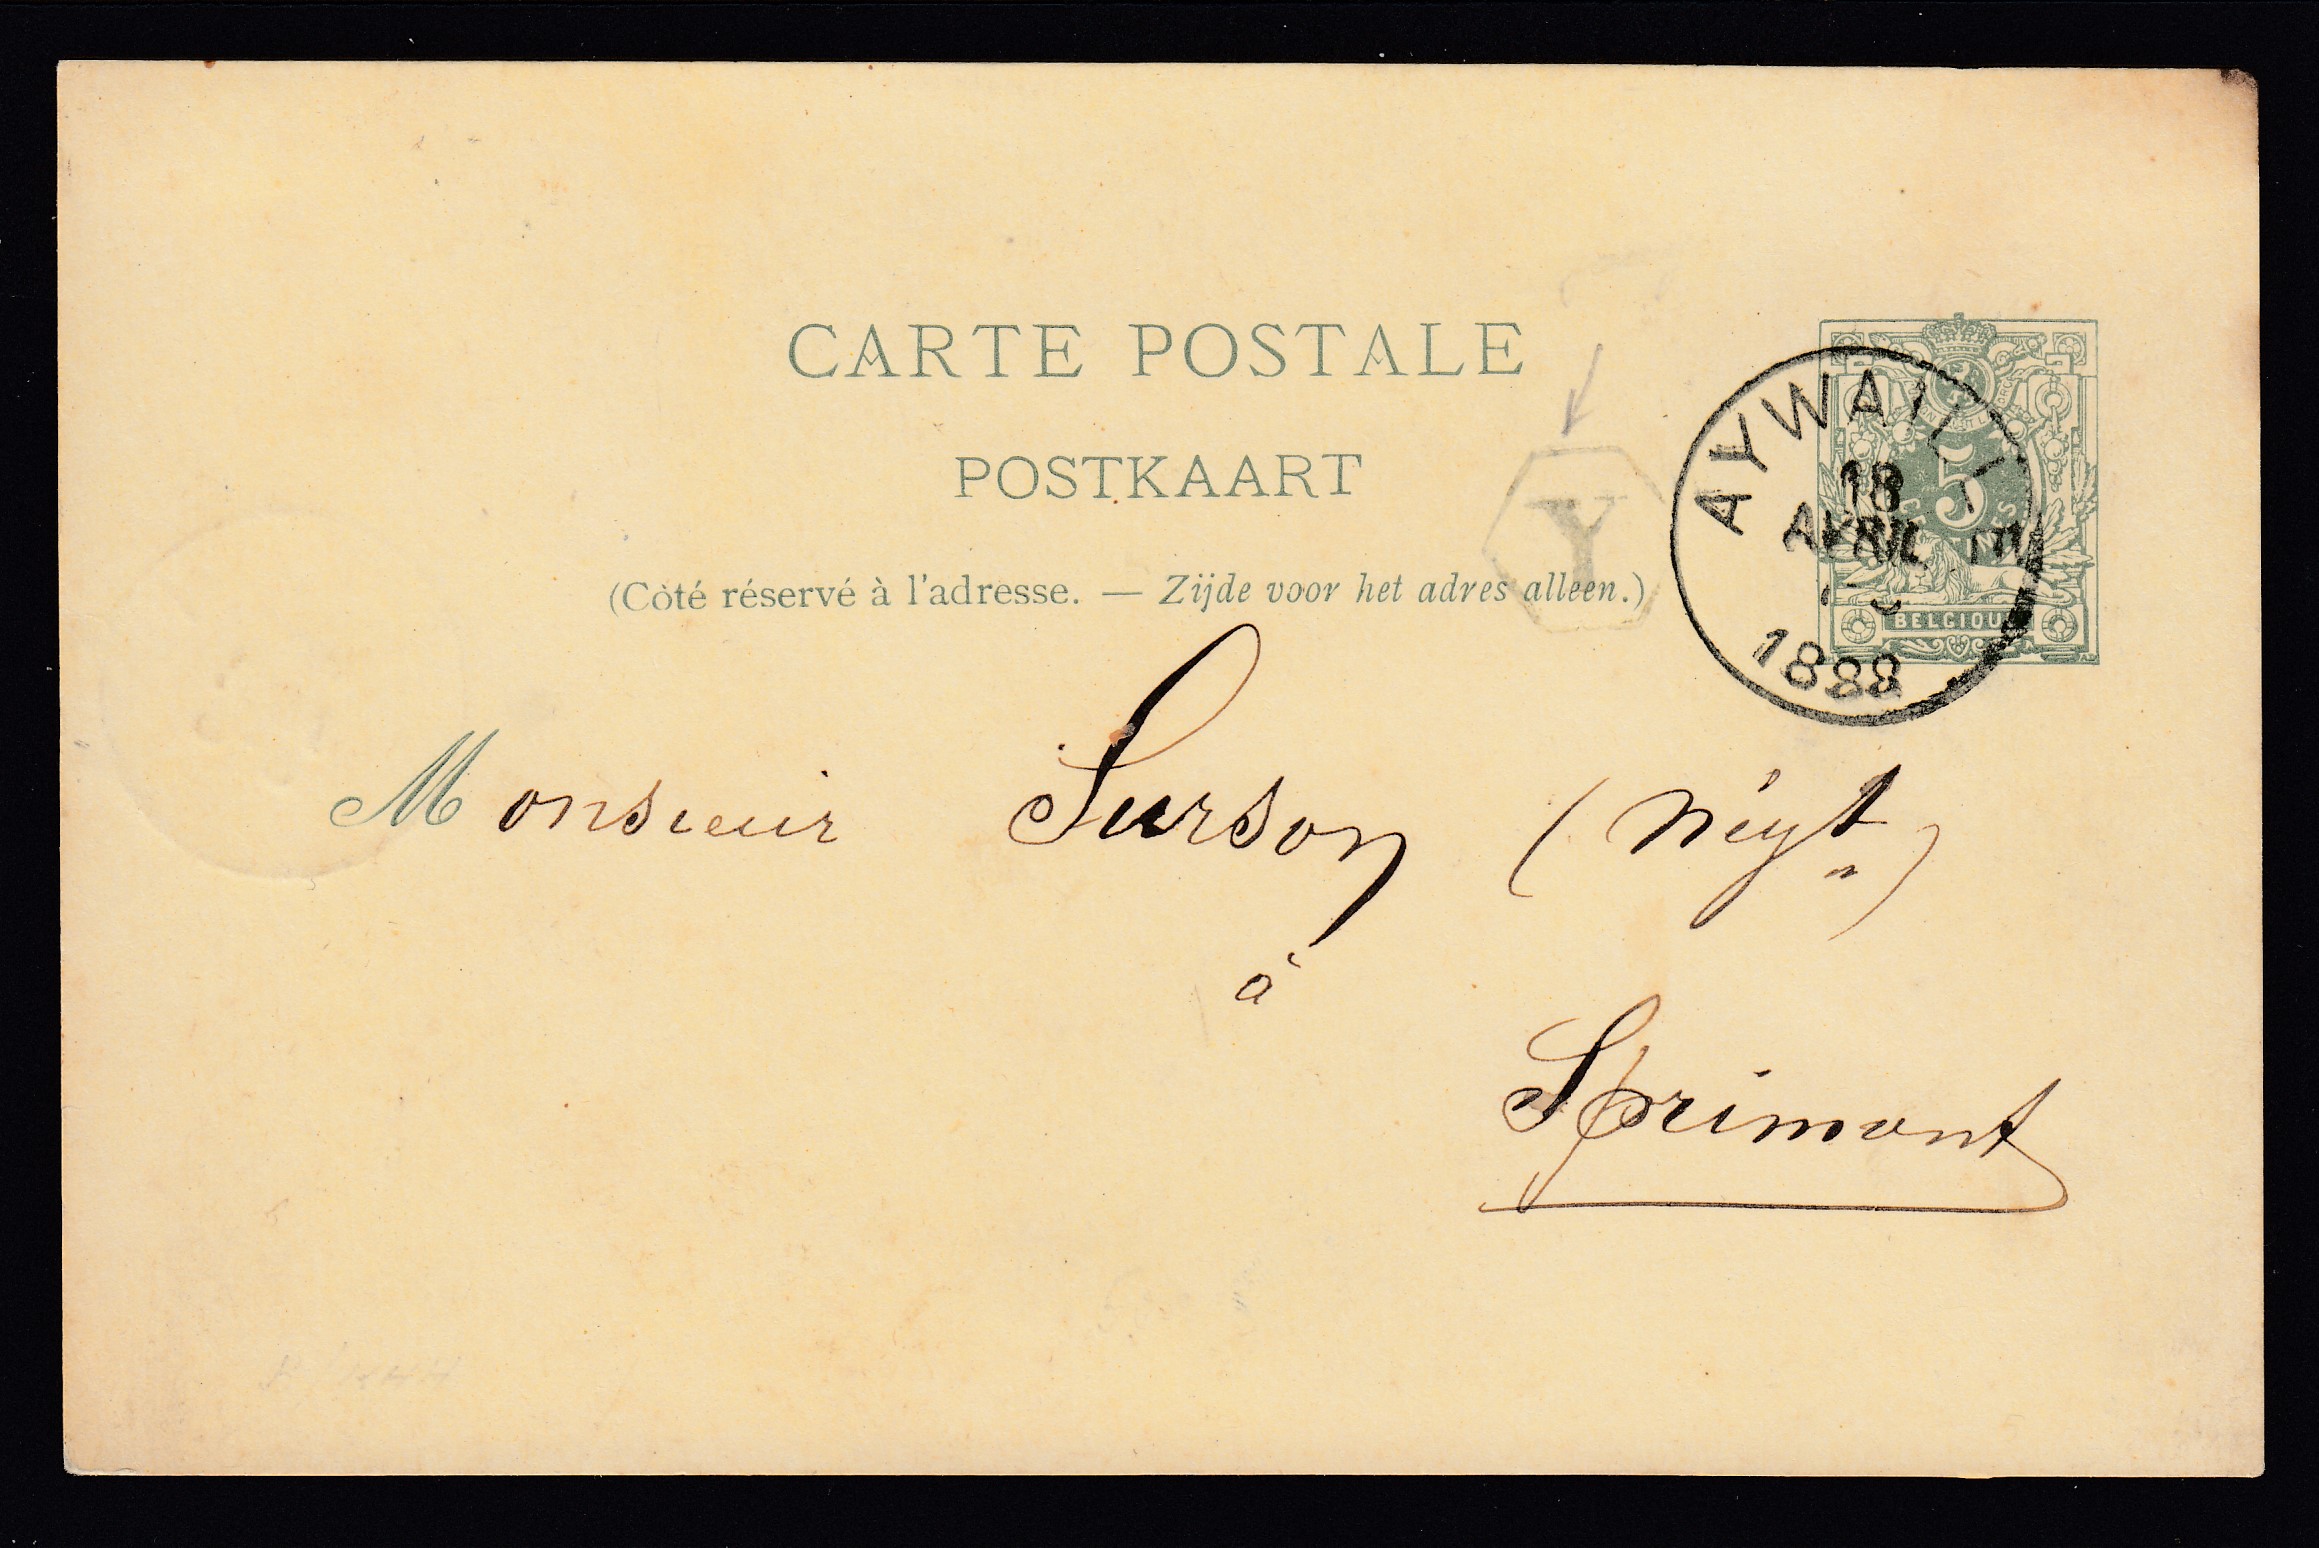 CARTE POSTALE
POSTKAART
(Côté réservé à l'adresse. — Zijde voor het adres alleen.)
Y
AYWAILLE
18
AVRIL
1888
5
BELGIQUE
Monsieur Surson (Négt)
à
Sprimont